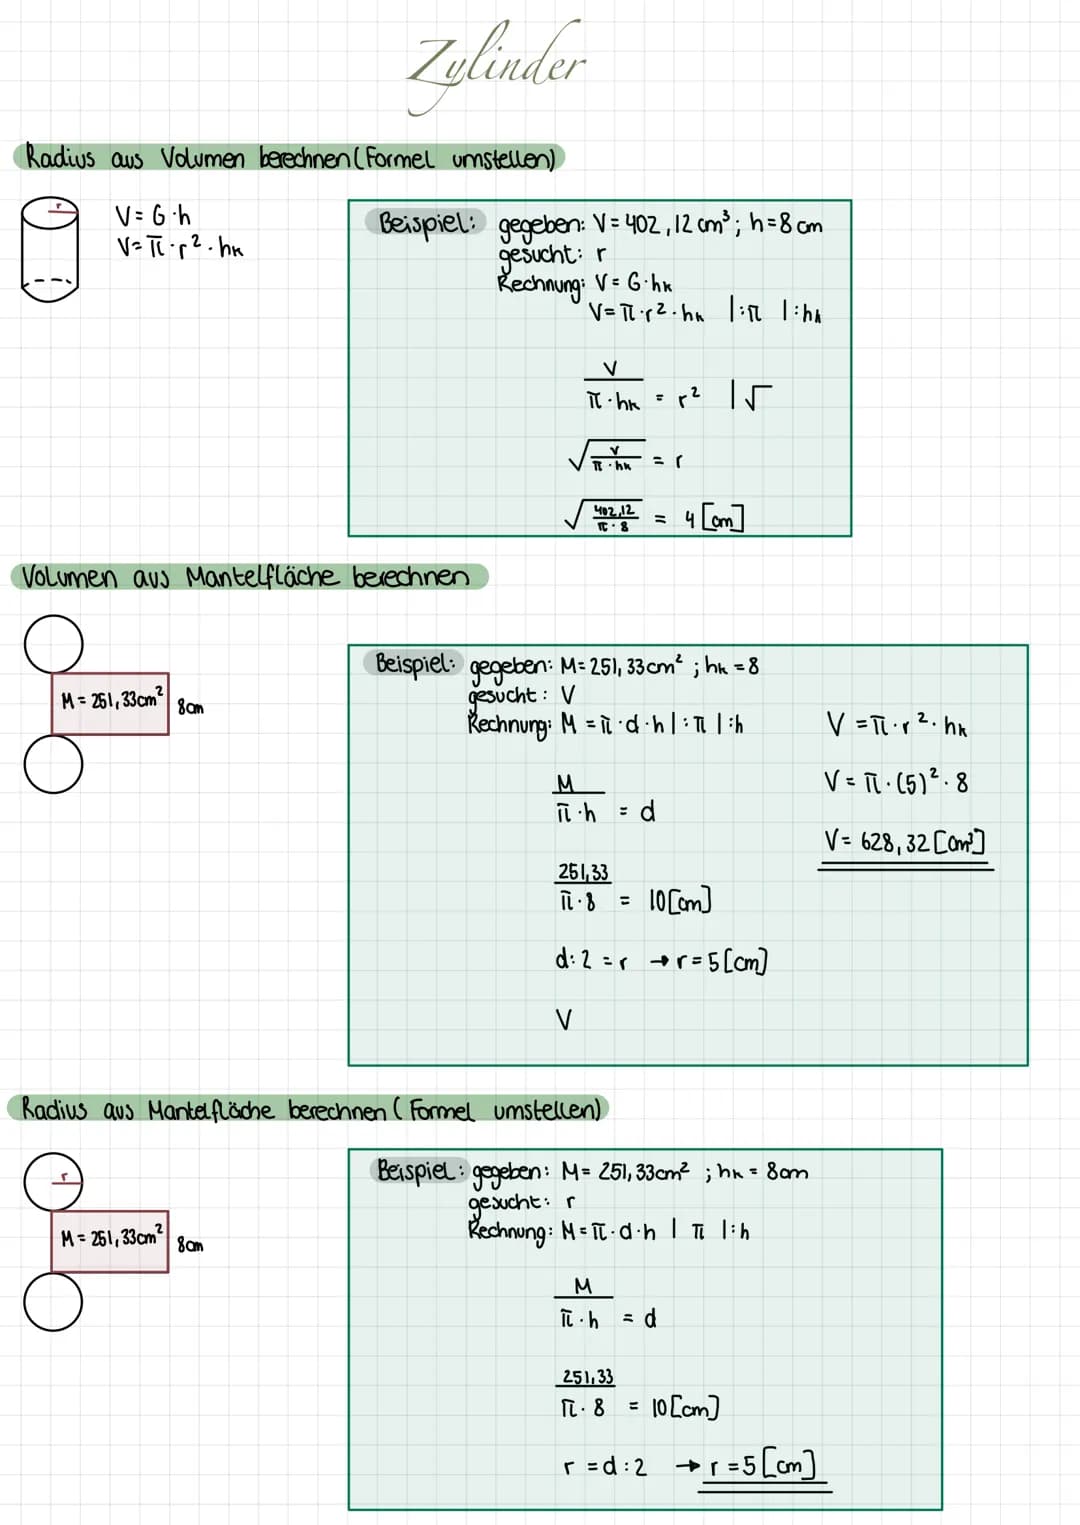 Zylinder
Radius aus Volumen berechnen (Formel umstellen)
r
V = G · h
V = π · r² · hₖ
Beispiel: gegeben: V = 402,12 cm³ ; h = 8 cm
gesucht: r
Rechnung: V = G · hₖ
V = π · r² · hₖ |:π |:hₖ
V
π · hₖ = r² |√
√ V / π · hₖ = r
√ 402,12 / π · 8 = 4 [cm]
Volumen aus Mantelfläche berechnen
M = 251,33cm² 8cm
Beispiel: gegeben: M = 251,33cm² ; hₖ = 8
gesucht: V
Rechnung: M = π · d · h |:π |:h
M
π · h = d
251,33
π · 8 = 10 [cm]
d : 2 = r → r = 5 [cm]
V
V = π · r² · hₖ
V = π · (5)² · 8
V = 628,32 [cm³]
Radius aus Mantelfläche berechnen (Formel umstellen)
r
M = 251,33cm² 8cm
Beispiel: gegeben: M = 251,33cm² ; hₖ = 8cm
gesucht: r
Rechnung: M = π · d · h | π |:h
M
π · h = d
251,33
π · 8 = 10 [cm]
r = d : 2 → r = 5 [cm]